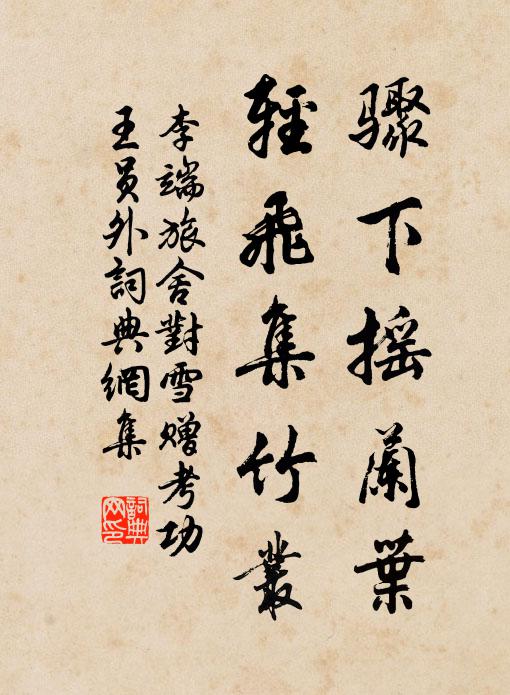 骤下摇蘭葉
輕飛集竹叢
李端旅舍對雪赠考功
王員外詞典網集
詞典
网印